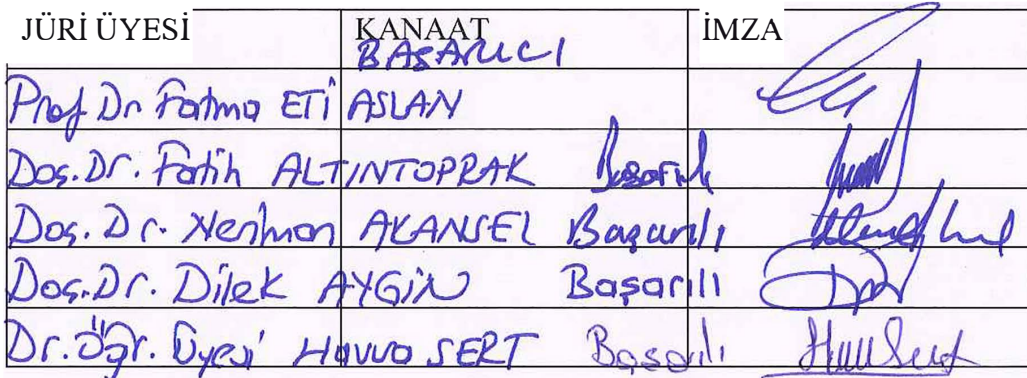 JÜRİ ÜYESİ KANAAT İMZA
BAŞARILI
Prof Dr Fatma ETİ ASLAN
Doç. Dr. Fatih ALTINTOPRAK Başarılı
Doç. Dr. Neriman AKANSEL Başarılı
Doç. Dr. Dilek AYGİN Başarılı
Dr. Öğr. Üyesi Havva SERT Başarılı